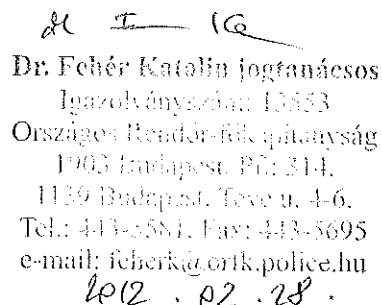 Dr. Fehér Katalin jogtanácsos
Igazolványszám: 13553
Országos Rendőr-főkapitányság
1903 Budapest, Pf.: 314.
1139 Budapest, Teve u. 4-6.
Tel.: 443-5581, Fax: 443-5695
e-mail: feherk@orfk.police.hu
2012. 02. 28.